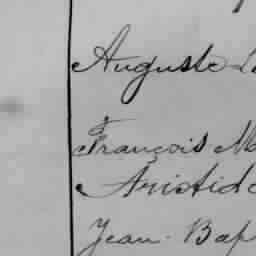 Auguste
François
Aristide
Jean